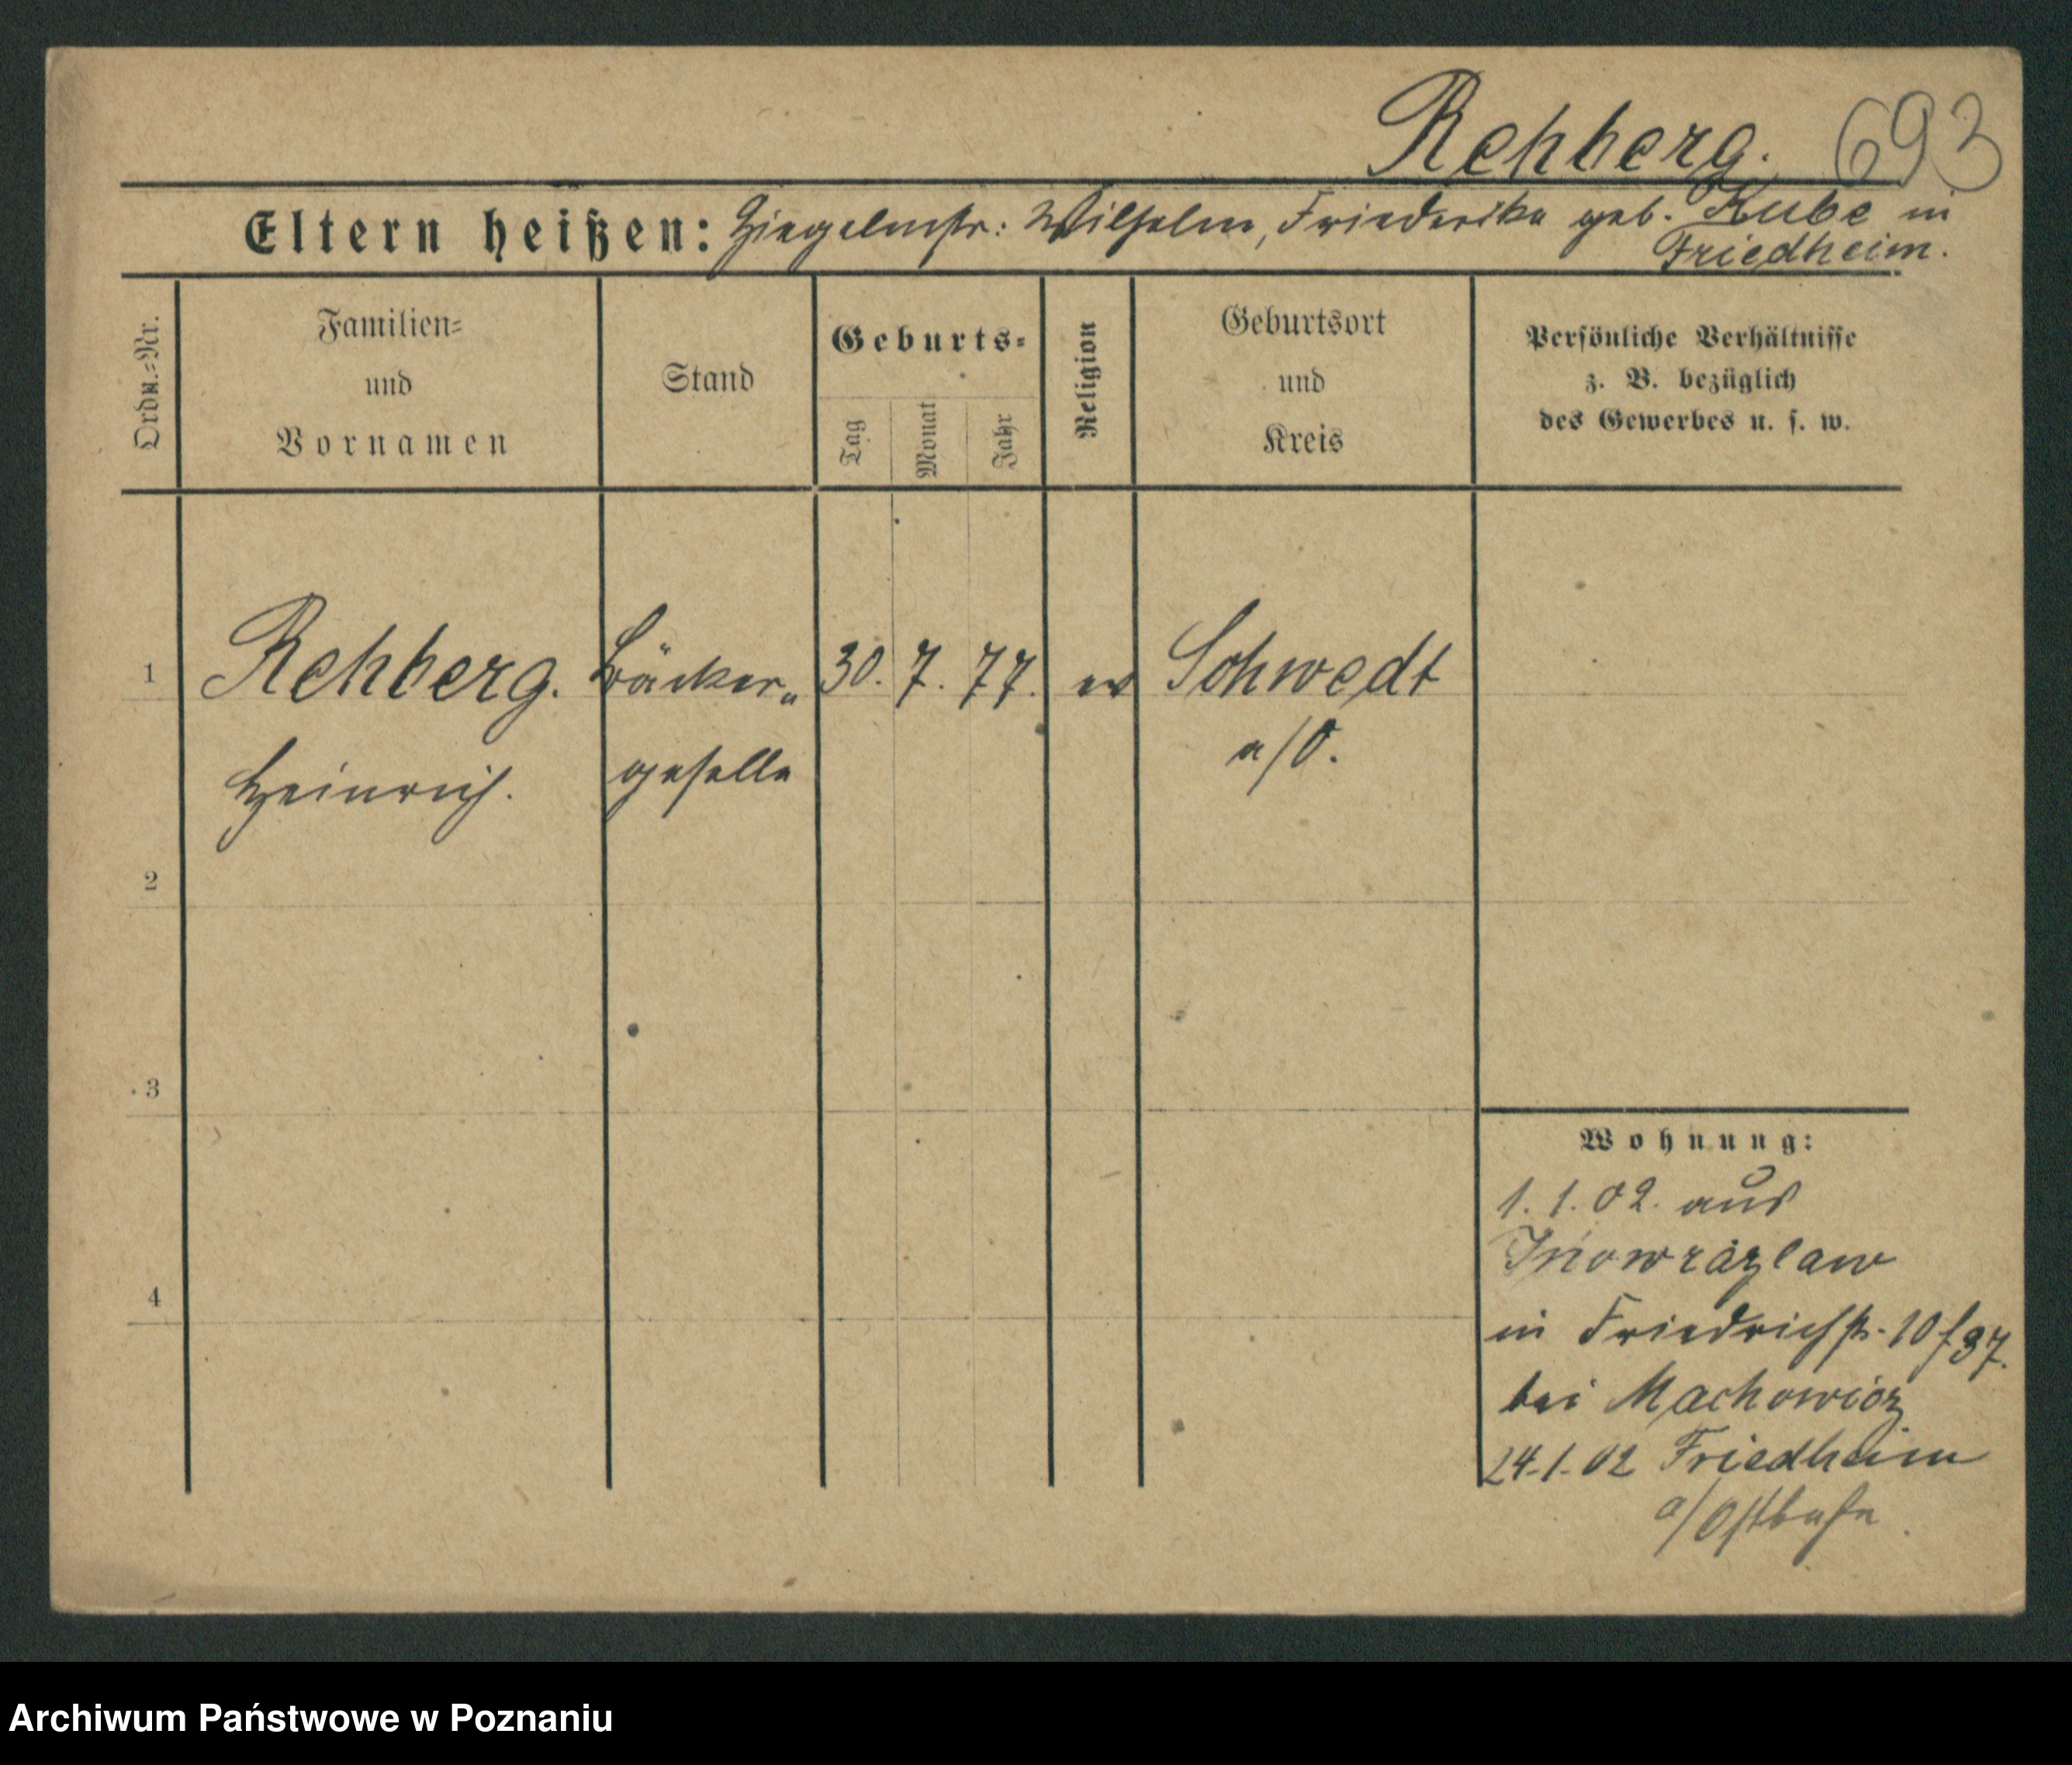 Rehberg. 693
Eltern heißen: Ziegelmstr: Wilhelm, Friederike geb. Kube in
Friedheim.
Ordn.-Nr.
Familien-
und
Vornamen
Stand
Geburts-
Tag
Monat
Jahr
Religion
Geburtsort
und
Kreis
Persönliche Verhältnisse
z. B. bezüglich
des Gewerbes u. s. w.
1 Rehberg. Bäcker- 30. 7. 77. ev Schwedt
a/O.
Heinrich. geselle
2
3
4
Wohnung:
1. 1. 02. aus
Inowrazlaw
in Friedrichstr. 10 f 37.
bei Machowicz
24.1.02 Friedheim
a/Ostbahn
Archiwum Państwowe w Poznaniu